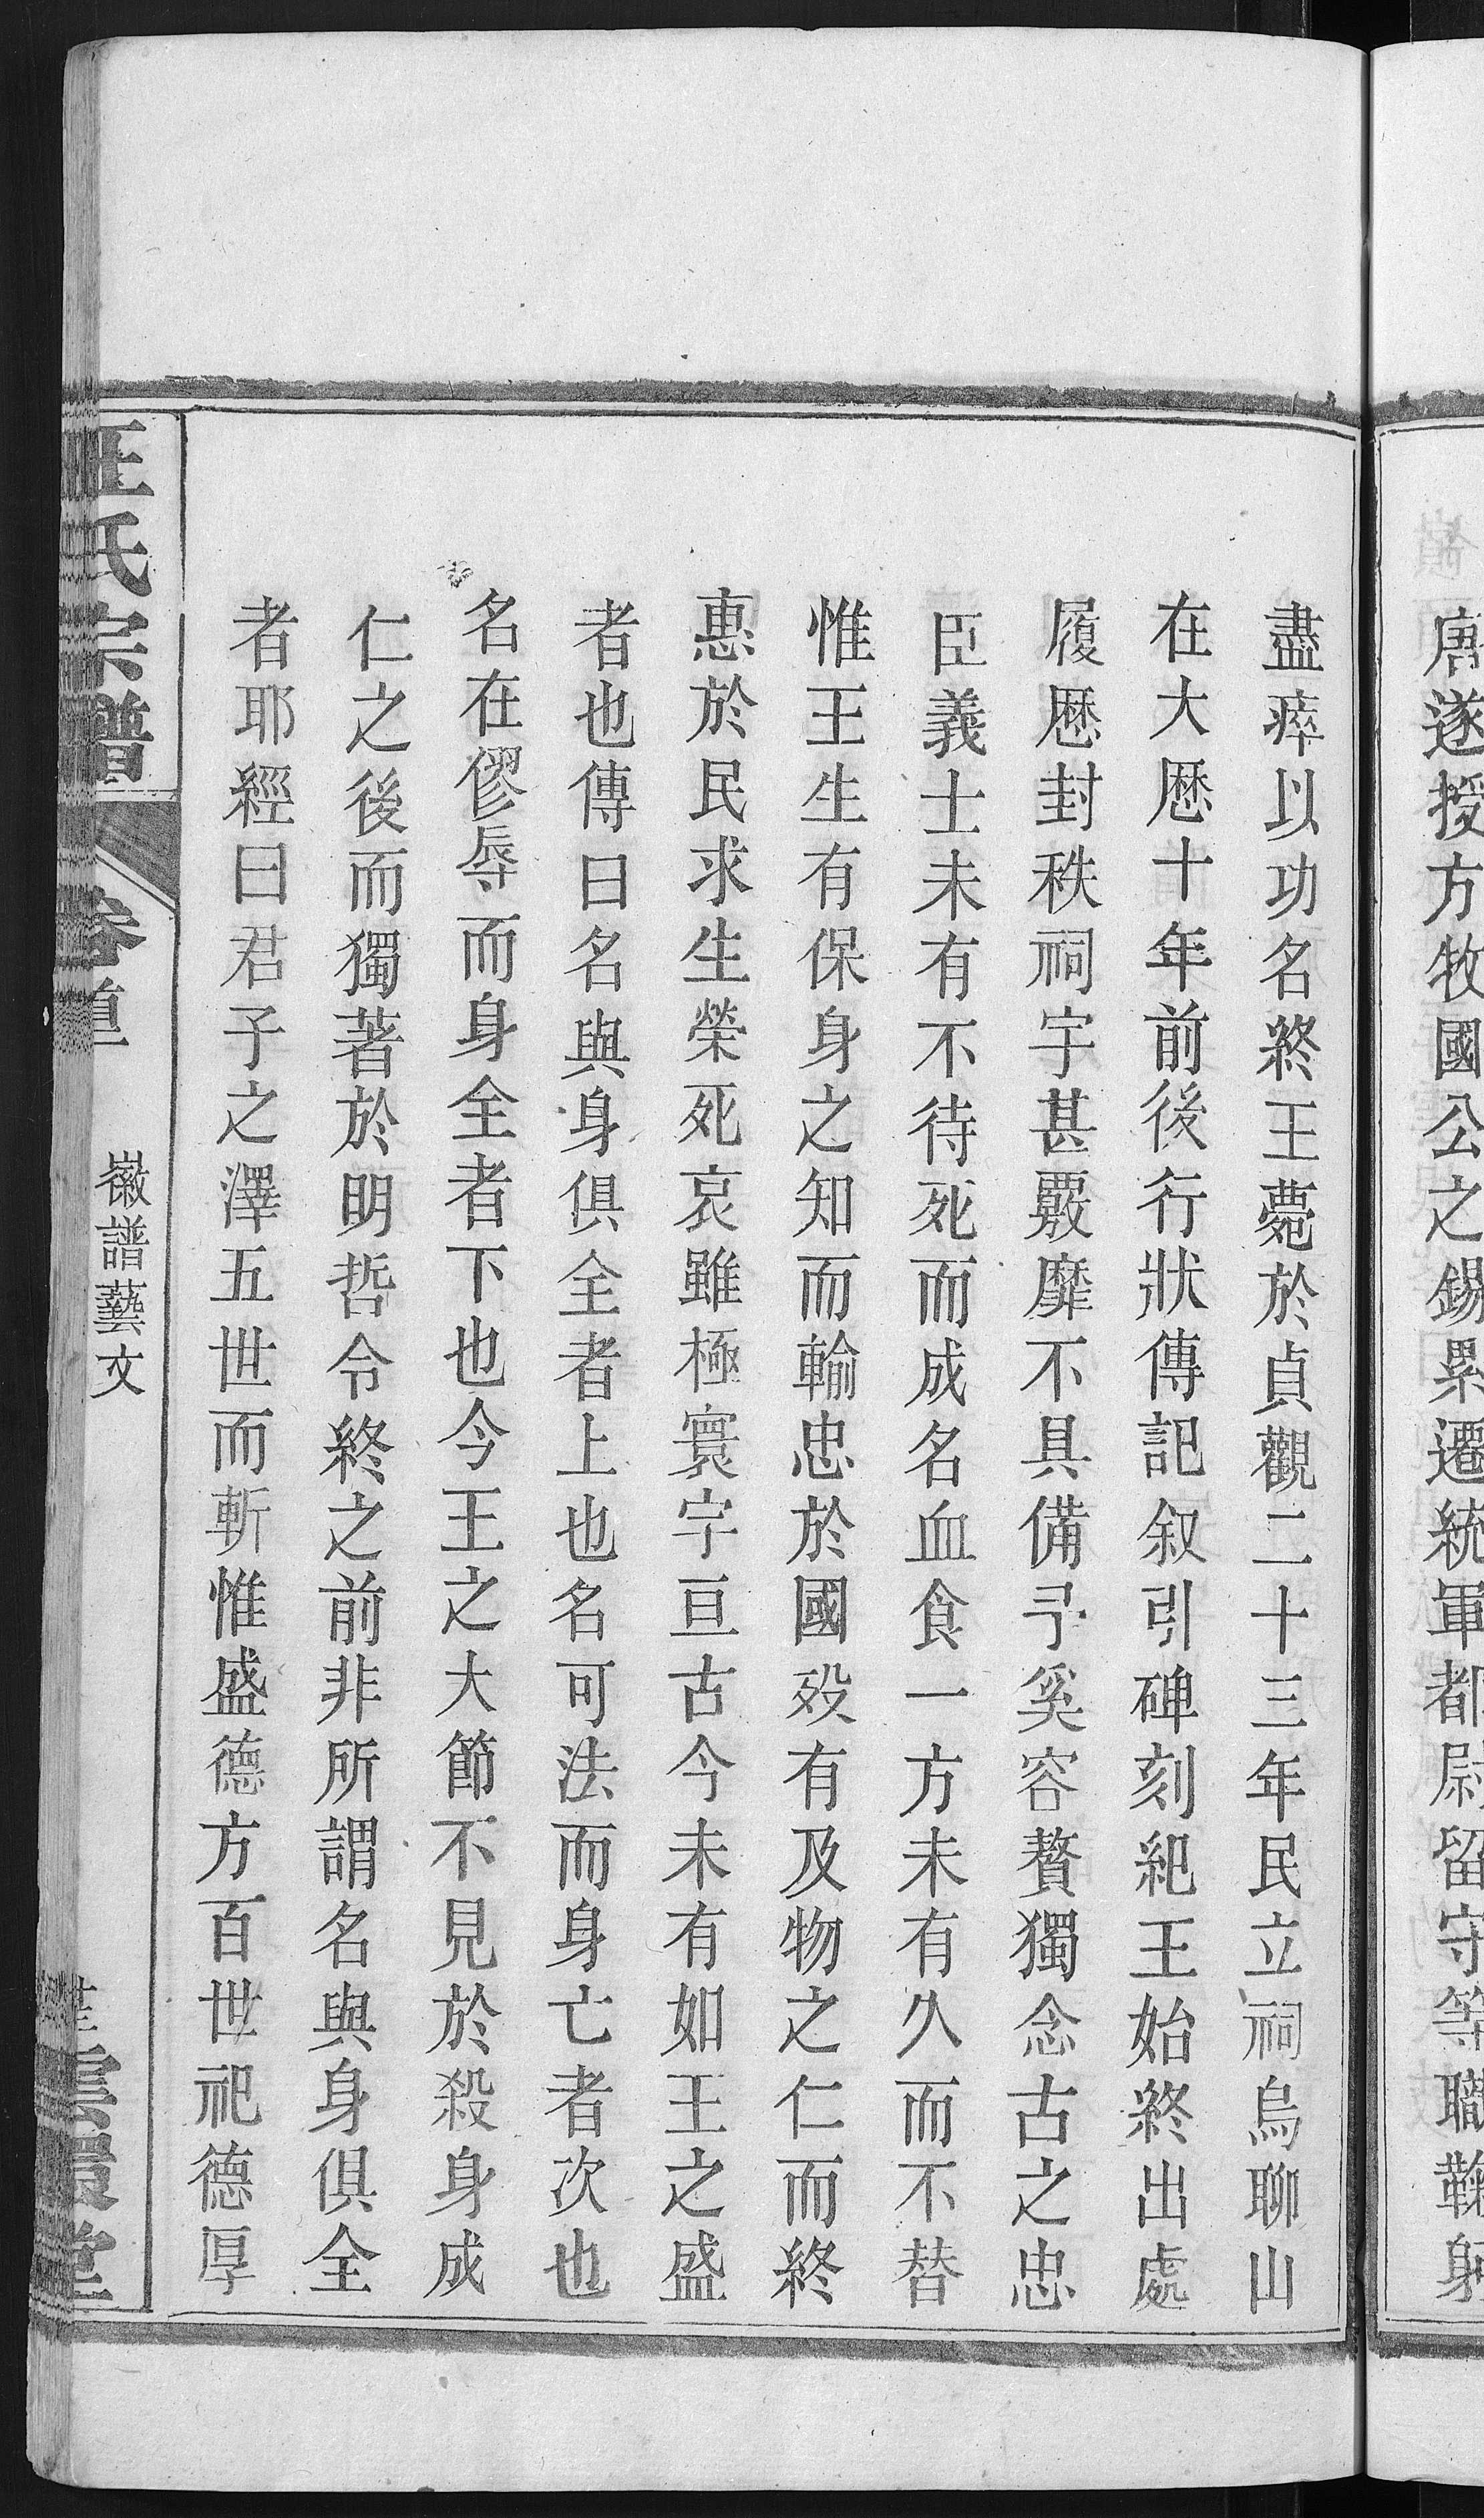 唐遂授方牧國公之錫累遷統軍都尉留守等職鞠躬
盡瘁以功名終王薨於貞觀二十三年民立祠烏聊山
在大厯十年前後行狀傳記叙引碑刻紀王始終出處
履厯封秩祠宇甚覈靡不具備予奚容贅獨念古之忠
臣義士未有不待死而成名血食一方未有久而不替
惟王生有保身之知而輸忠於國歿有及物之仁而終
惠於民求生榮死哀雖極寰宇亘古今未有如王之盛
者也傳曰名與身俱全者上也名可法而身亡者次也
名在僇辱而身全者下也今王之大節不見於殺身成
仁之後而獨著於明哲令終之前非所謂名與身俱全
者耶經曰君子之澤五世而斬惟盛德方百世祀德厚
汪氏宗譜 卷首 徽譜藝文 雲環堂